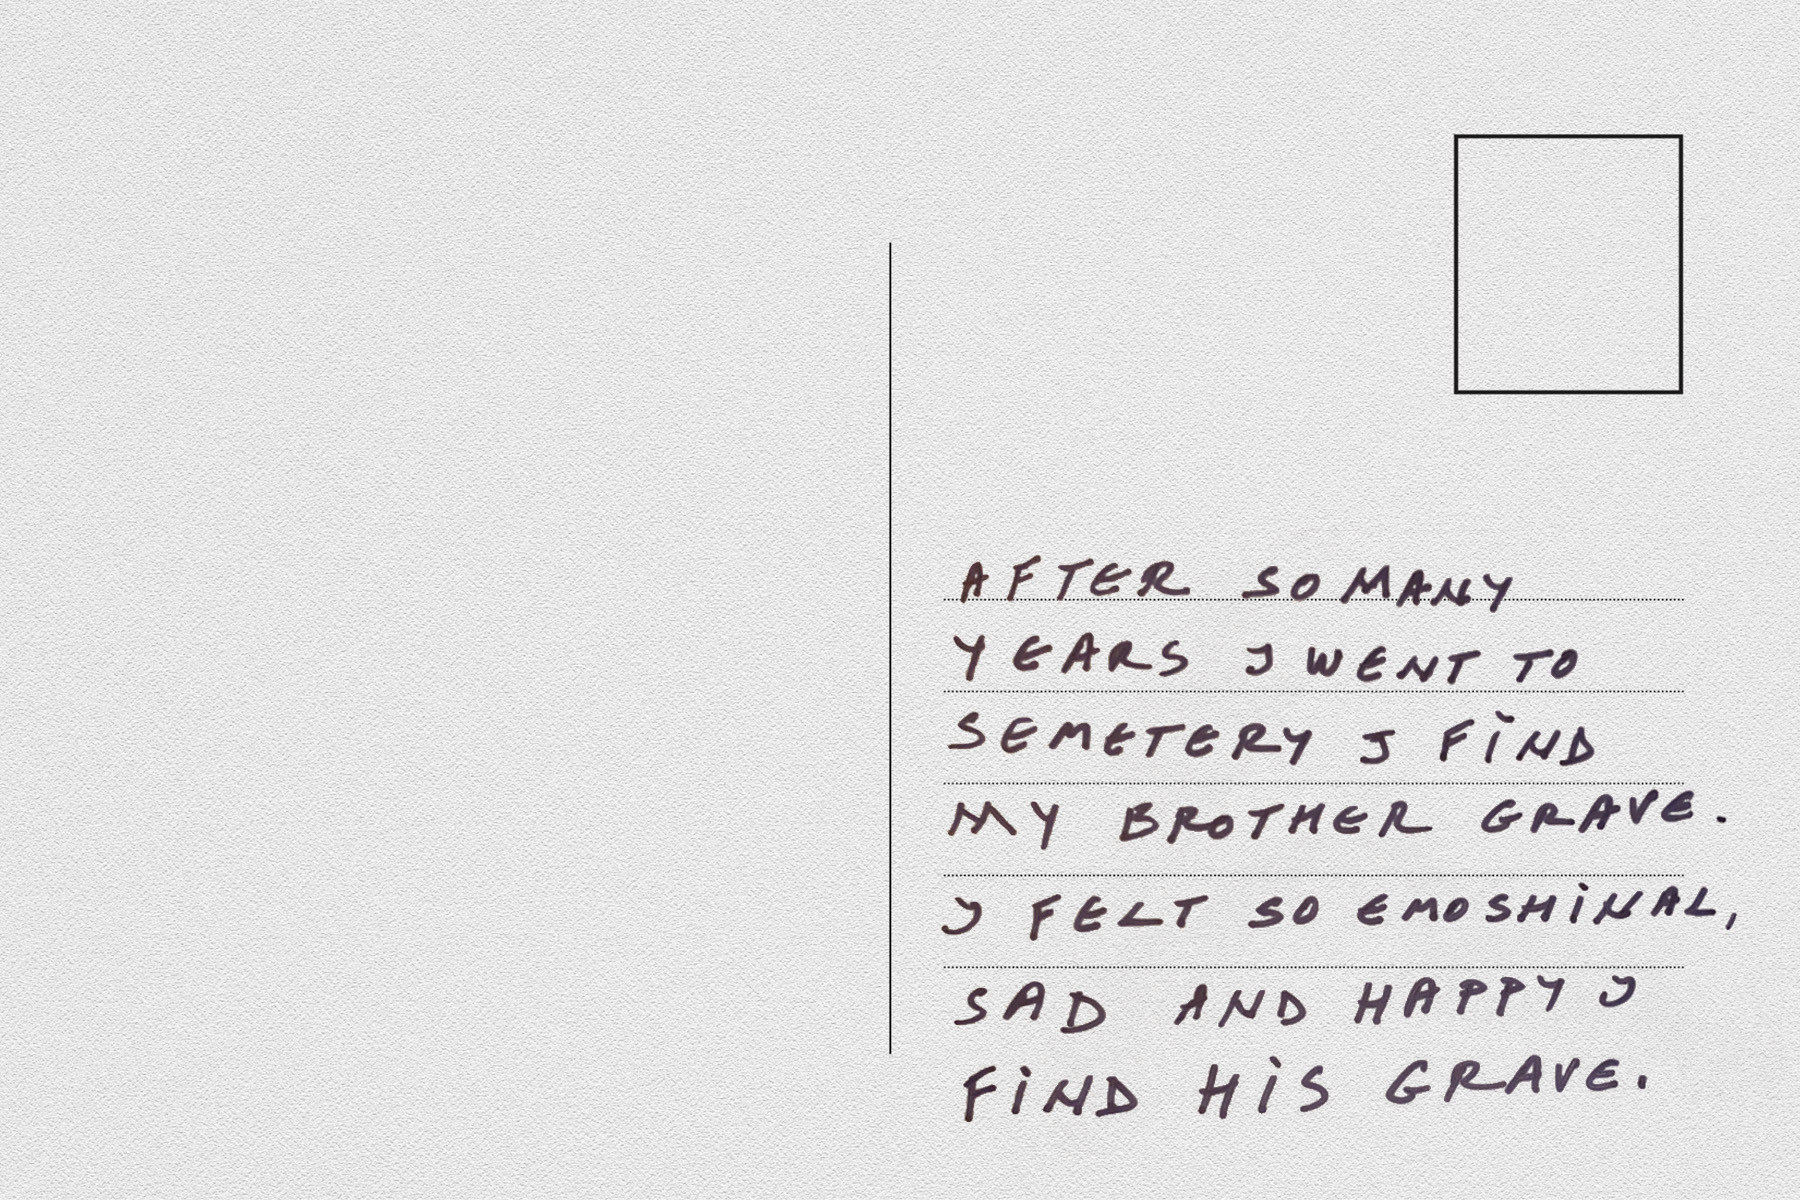 AFTER SO MANY
YEARS I WENT TO
SEMETERY I FIND
MY BROTHER GRAVE.
I FELT SO EMOSHINAL,
SAD AND HAPPY I
FIND HIS GRAVE.